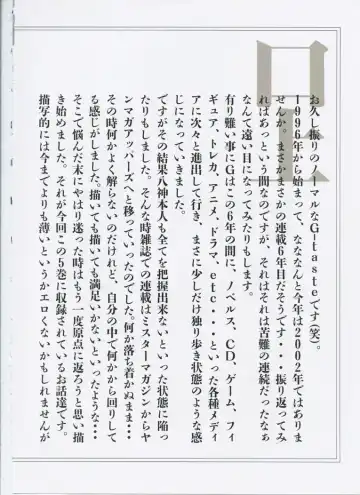 お久し振りのノーマルなG-tasteです(笑)。
1996年から始まって、なななんと今年は2002年ではありま
せんか。まさかまさかの連載6年目だそうです・・・振り返ってみ
ればあっという間なのですが、それはそれは苦難の連続だったなぁ
なんて遠い目になってみたりもします。
有り難い事にGはこの6年の間に、ノベルス、CD、ゲーム、フィ
ギュア、トレカ、アニメ、ドラマ、etc・・・といった各種メディ
アに次々と進出して行き、まさに少しだけ独り歩き状態のような感
じになっていきました。
ですがその結果八神本人も全てを把握出来ないといった状態に陥っ
たりもしました。そんな時雑誌での連載はミスターマガジンからヤ
ンマガアッパーズへと移っていったのでした。何か落ち着かぬまま・・・
その時何かよく解らないのだけれど、自分の中で何かから回りして
る感じがしました。描いても描いても満足いかないといったような・・・
そこで悩んだ末にやはり迷った時はもう一度原点に返ろうと思い描
き始めました。それが今回この5巻に収録されているお話達です。
描写的には今までよりも薄いというかエロくないかもしれませんが